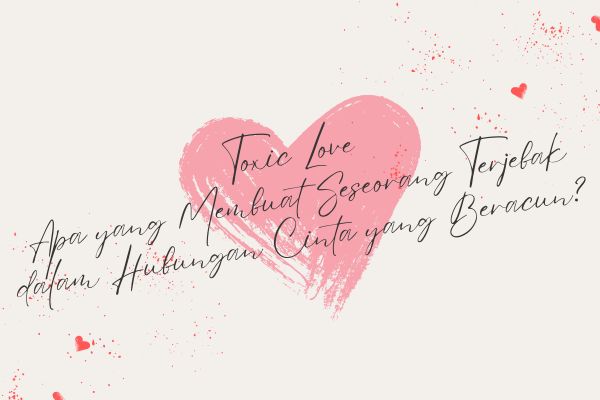 Toxic Love
Apa yang Membuat Seseorang Terjebak
dalam Hubungan Cinta yang Beracun?